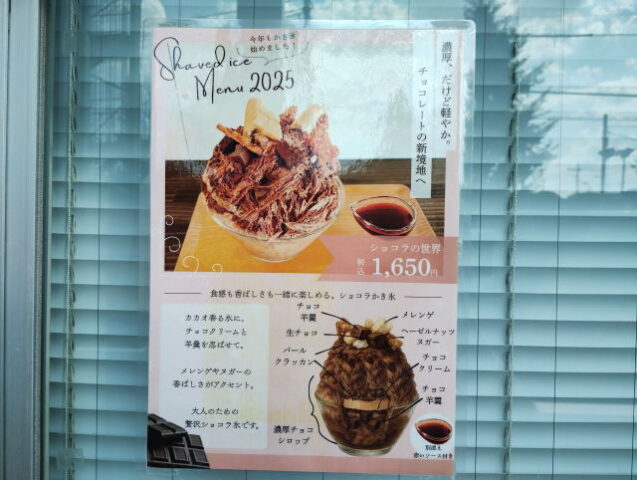 今年もかき氷
始めました!
Shaved ice
Menu 2025
濃厚、だけど軽やか。
チョコレートの新境地へ
ショコラの世界
税込 1,650円
食感も香ばしさも一緒に楽しめる、ショコラかき氷
カカオ香る氷に、
チョコクリームと
羊羹を忍ばせて。
メレンゲやヌガーの
香ばしさがアクセント。
大人のための
贅沢ショコラ氷です。
チョコ
羊羹
生チョコ
パール
クラッカン
濃厚チョコ
シロップ
メレンゲ
ヘーゼルナッツ
ヌガー
チョコ
クリーム
チョコ
羊羹
別添え
赤いソース付き